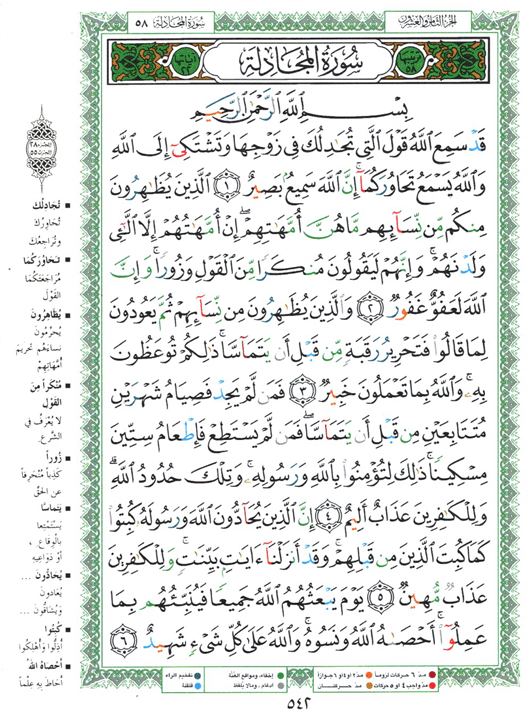 الجزء الثامن والعشرون
سورة المجادلة ٥٨
ترتيبها ٥٨
سُورَةُ المُجَادلَة
آياتها ٢٢
بِسْمِ اللَّهِ الرَّحْمَٰنِ الرَّحِيمِ
قَدْ سَمِعَ اللَّهُ قَوْلَ الَّتِي تُجَادِلُكَ فِي زَوْجِهَا وَتَشْتَكِي إِلَى اللَّهِ
وَاللَّهُ يَسْمَعُ تَحَاوُرَكُمَا إِنَّ اللَّهَ سَمِيعٌ بَصِيرٌ ١ الَّذِينَ يُظَاهِرُونَ
مِنكُم مِّن نِّسَائِهِم مَّا هُنَّ أُمَّهَاتِهِمْ ۖ إِنْ أُمَّهَاتُهُمْ إِلَّا اللَّائِي
وَلَدْنَهُمْ ۚ وَإِنَّهُمْ لَيَقُولُونَ مُنكَرًا مِّنَ الْقَوْلِ وَزُورًا ۚ وَإِنَّ
اللَّهَ لَعَفُوٌّ غَفُورٌ ٢ وَالَّذِينَ يُظَاهِرُونَ مِن نِّسَائِهِمْ ثُمَّ يَعُودُونَ
لِمَا قَالُوا فَتَحْرِيرُ رَقَبَةٍ مِّن قَبْلِ أَن يَتَمَاسَّا ۚ ذَٰلِكُمْ تُوعَظُونَ
بِهِ ۚ وَاللَّهُ بِمَا تَعْمَلُونَ خَبِيرٌ ٣ فَمَن لَّمْ يَجِدْ فَصِيَامُ شَهْرَيْنِ
مُتَتَابِعَيْنِ مِن قَبْلِ أَن يَتَمَاسَّا ۖ فَمَن لَّمْ يَسْتَطِعْ فَإِطْعَامُ سِتِّينَ
مِسْكِينًا ۚ ذَٰلِكَ لِتُؤْمِنُوا بِاللَّهِ وَرَسُولِهِ ۚ وَتِلْكَ حُدُودُ اللَّهِ ۗ
وَلِلْكَافِرِينَ عَذَابٌ أَلِيمٌ ٤ إِنَّ الَّذِينَ يُحَادُّونَ اللَّهَ وَرَسُولَهُ كُبِتُوا
كَمَا كُبِتَ الَّذِينَ مِن قَبْلِهِمْ ۚ وَقَدْ أَنزَلْنَا آيَاتٍ بَيِّنَاتٍ ۚ وَلِلْكَافِرِينَ
عَذَابٌ مُّهِينٌ ٥ يَوْمَ يَبْعَثُهُمُ اللَّهُ جَمِيعًا فَيُنَبِّئُهُم بِمَا
عَمِلُوا ۚ أَحْصَاهُ اللَّهُ وَنَسُوهُ ۚ وَاللَّهُ عَلَىٰ كُلِّ شَيْءٍ شَهِيدٌ ٦
■ تُجَادِلُكَ
تُحَاوِرُكَ
وتُرَاجِعُكَ
■ تَحَاوُرَكُمَا
مُرَاجَعَتَكُمَا
القَوْلَ
■ يُظَاهِرُونَ
يُحرِّمُونَ
نساءَهُم تحريمَ
أُمَّهاتِهِمْ
■ مُنْكَراً مِنَ
القَوْلِ
لا يُعْرَفُ في
الشَّرعِ
■ زُوراً
كَذِباً مُنْحَرِفاً
عن الحَقّ
■ يَتماسَّا
يَسْتَمْتِعا
بالوِقَاعِ،
أو دَوَاعِيهِ
■ يُحادُّونَ ...
يُعَادونَ
ويُشَاقُّونَ ...
■ كُبِتُوا
أُذِلُّوا وأُهْلِكُوا
■ أحْصَاهُ اللهُ
أَحَاطَ بِهِ عِلْماً
مدّ ٦ حركات لزوماً مدّ ٢ أو ٤ أو ٦ جوازاً
مدّ واجب ٤ أو ٥ حركات مدّ حركتان
إخفاء، ومواقع الغُنَّة
إدغام، وما لا يُلفَظ
تفخيم الراء
قلقلة
٥٤٢